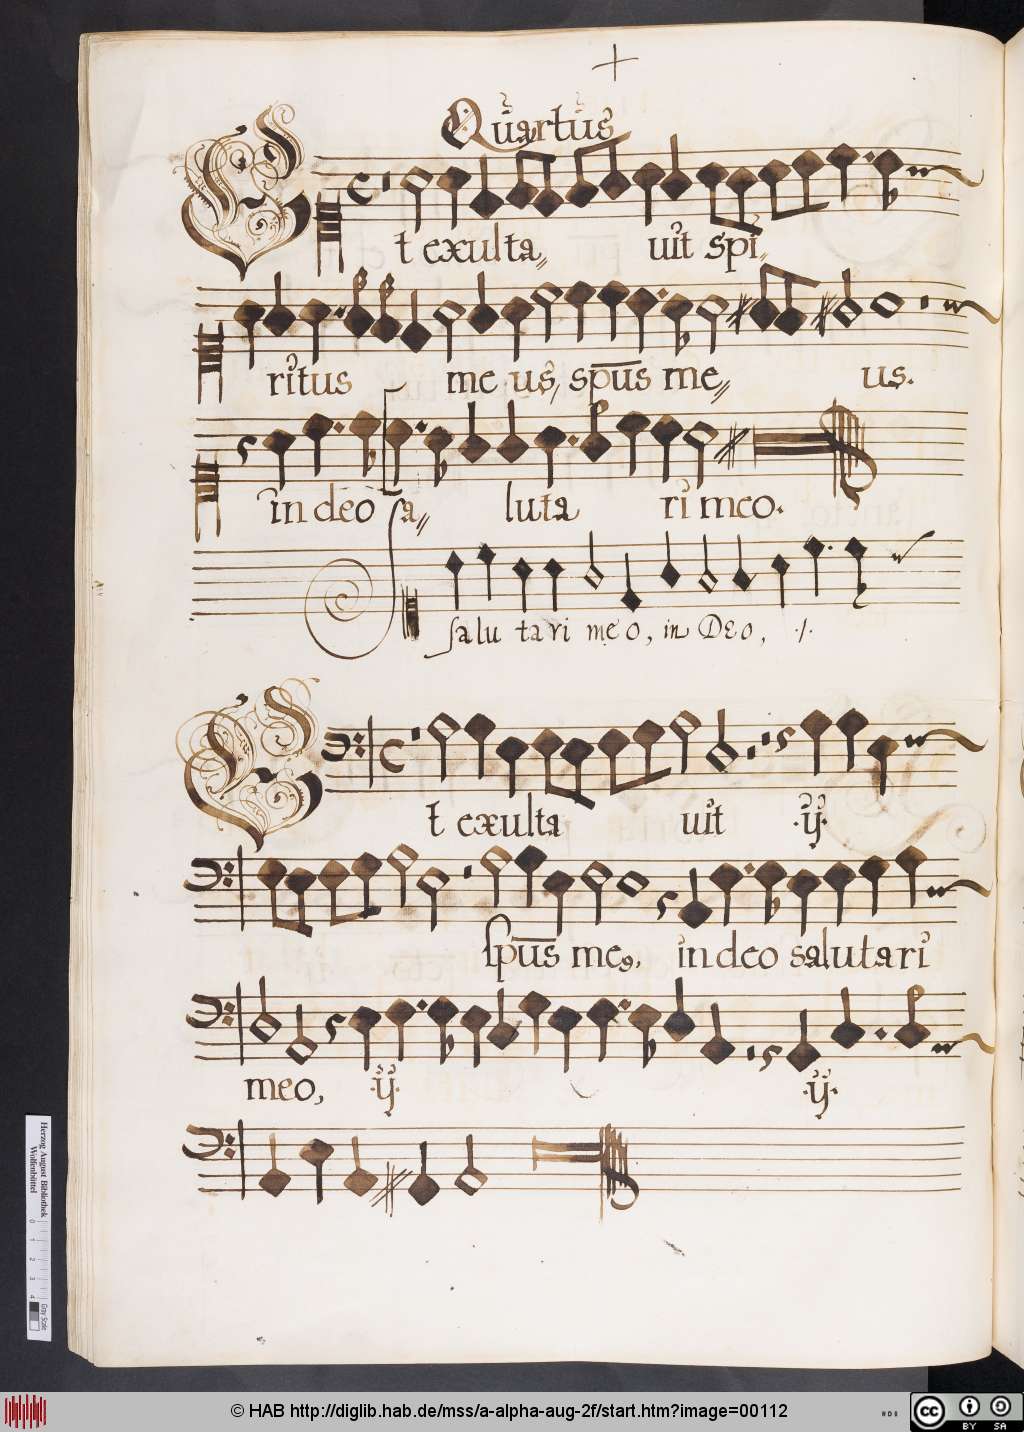 Quartus
Et exulta„ uit spi„
ritus me us, spūs me„ us.
in deo sa„ luta ri meo.
salu tari meo, in Deo, ./.
Et exulta uit ·ÿ·
spūs me9, in deo salutari
meo, ·ÿ· ·ÿ·
Herzog August Bibliothek
Wolfenbüttel
0 1 2 3 4
Gray Scale
© HAB http://diglib.hab.de/mss/a-alpha-aug-2f/start.htm?image=00112
cc BY SA